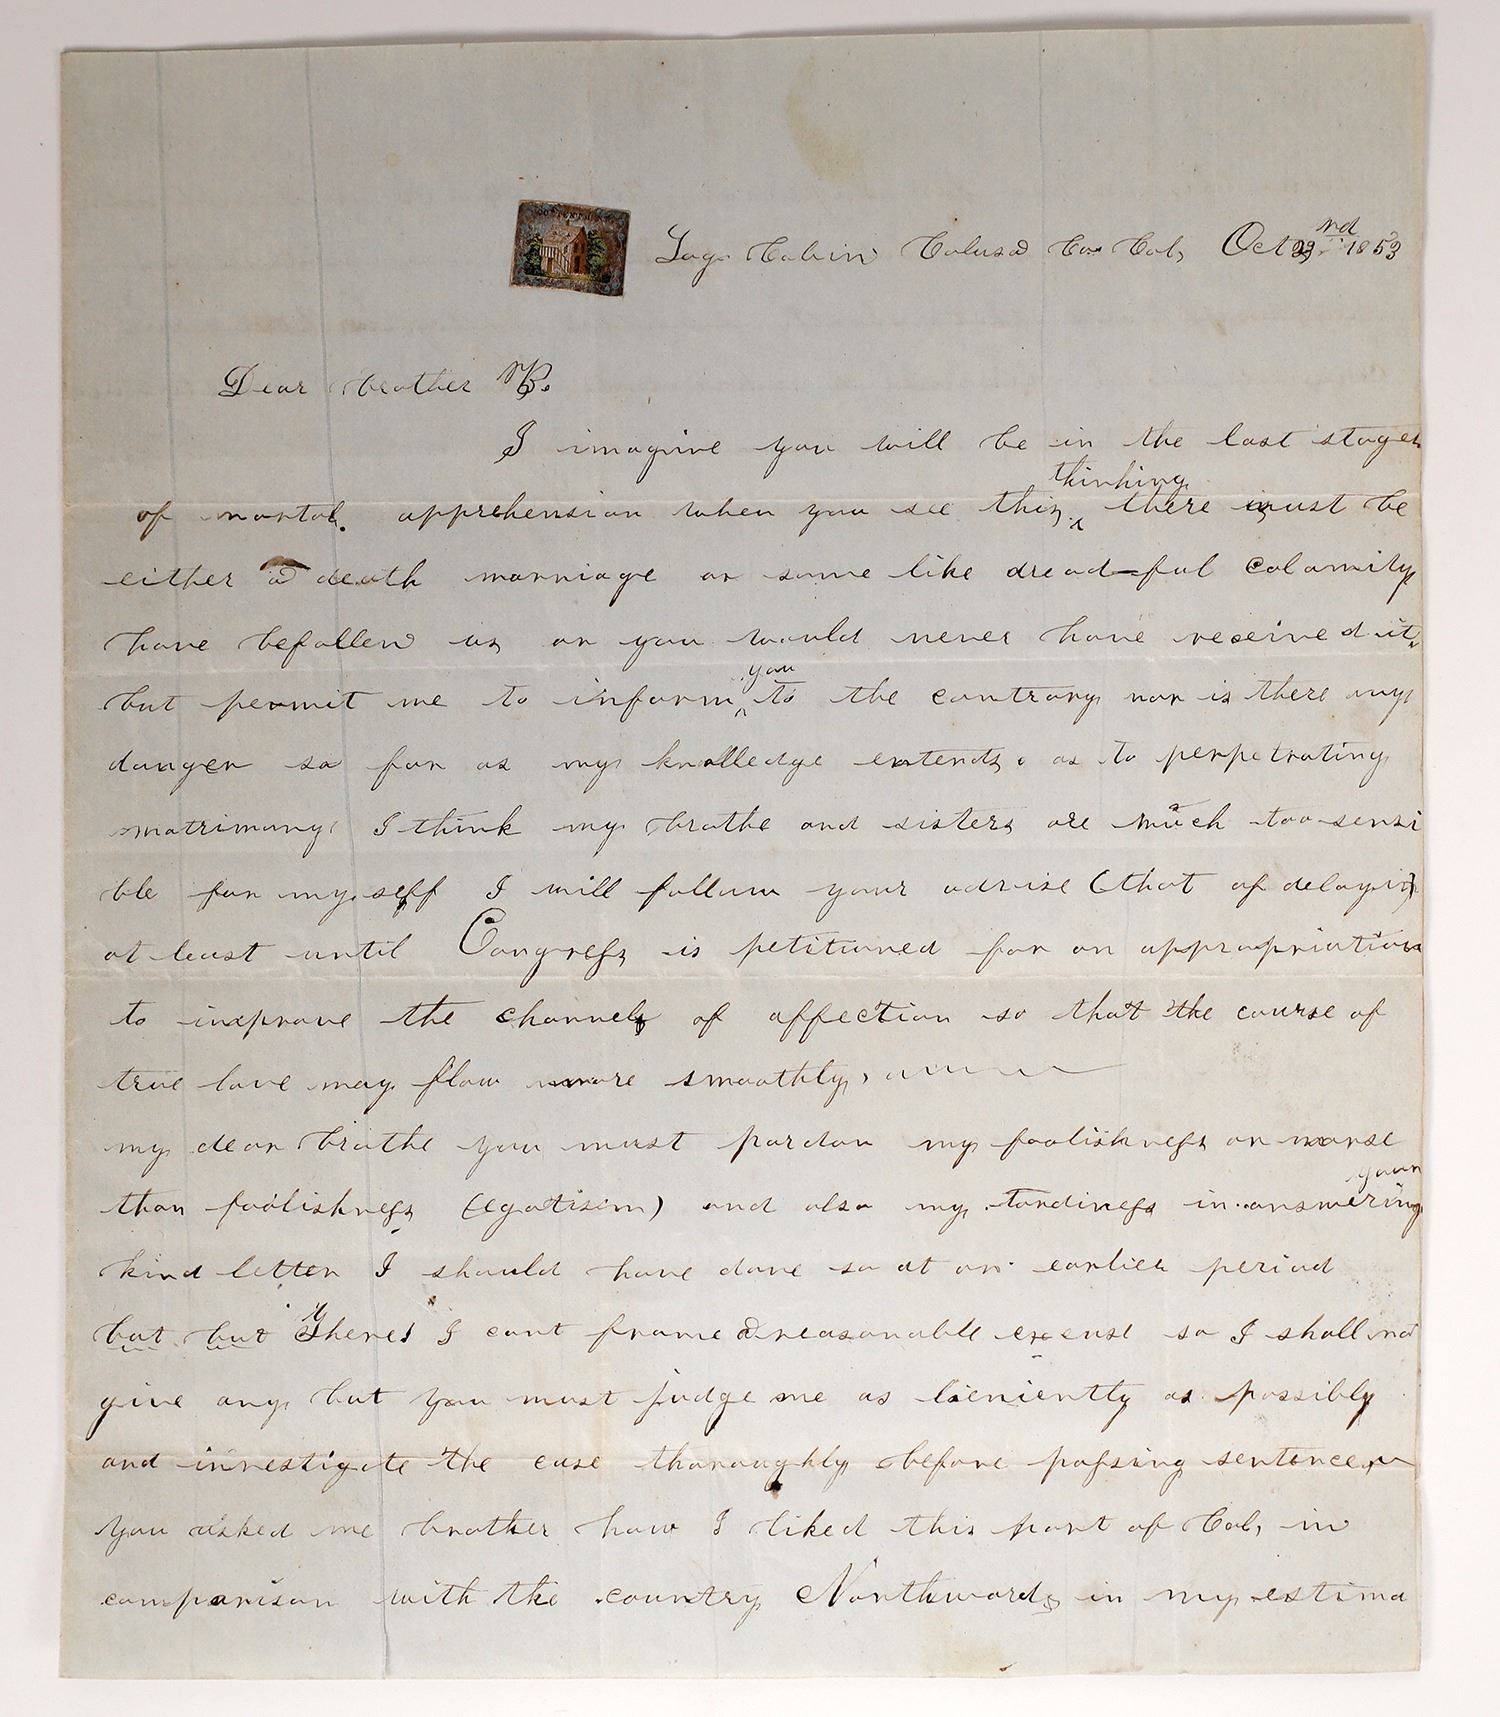 Log Cabin Colusa Co Cal, Oct 23rd 1853
Dear brother
I imagine you will be in the last stages
thinking
of mortal. apprehension when you see this, there must be
either a death marriage or some like dread=ful calamity
have befallen us or you would never have received it
you
but permit me to inform to the contrary nor is there any
danger so far as my knolledge extends. as to perpetrating
matrimony I think my brothe and sisters are much too sensi
ble for my self I will follow your advise (that of delaying)
at least until Congress is petitioned for an appropriation
to improve the channels of affection so that the course of
true love may flow more smoothly,
my dear brothe you must pardon my foolishness or worse
your
than foolishness (egotisim) and also my tardiness in answering
kind letter I should have done so at an earlier period
but but There! I cant frame a reasonable excuse so I shall not
give any but you must judge me as lieniently as possibly
and investigate the case thoroughly before passing sentence
You asked me brother how I liked this part of Cal, in
comparison with the country Northward, in my estima